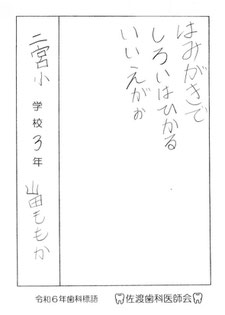 はみがきで
しろいはひかる
いいえがお
二宮小学校3年 山田ももか
令和6年歯科標語 佐渡歯科医師会